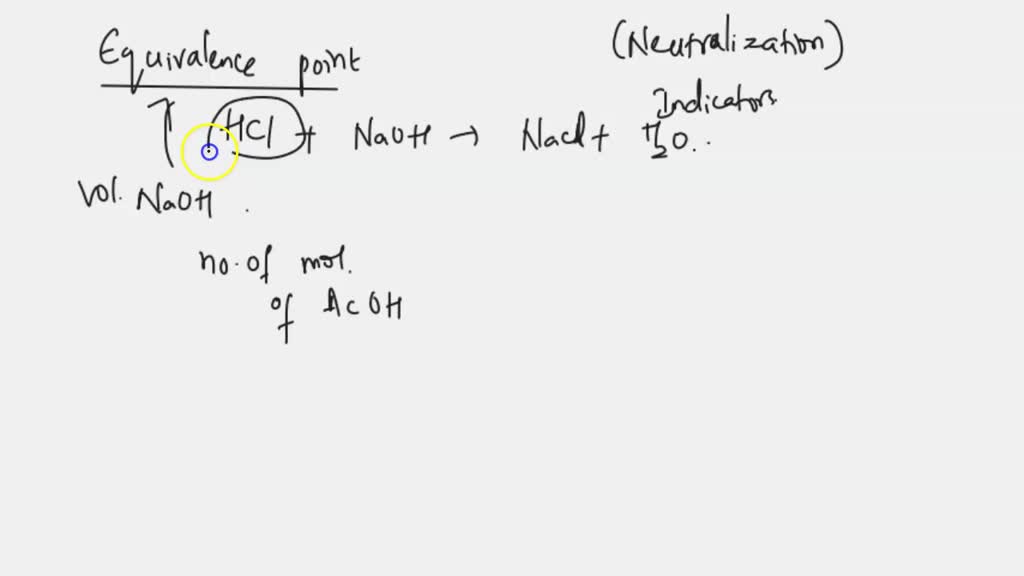 Equivalence point
(Neutralization)
Indicators
HCl + NaOH → NaCl + H2O..
Vol. NaOH .
no. of mol.
of AcOH